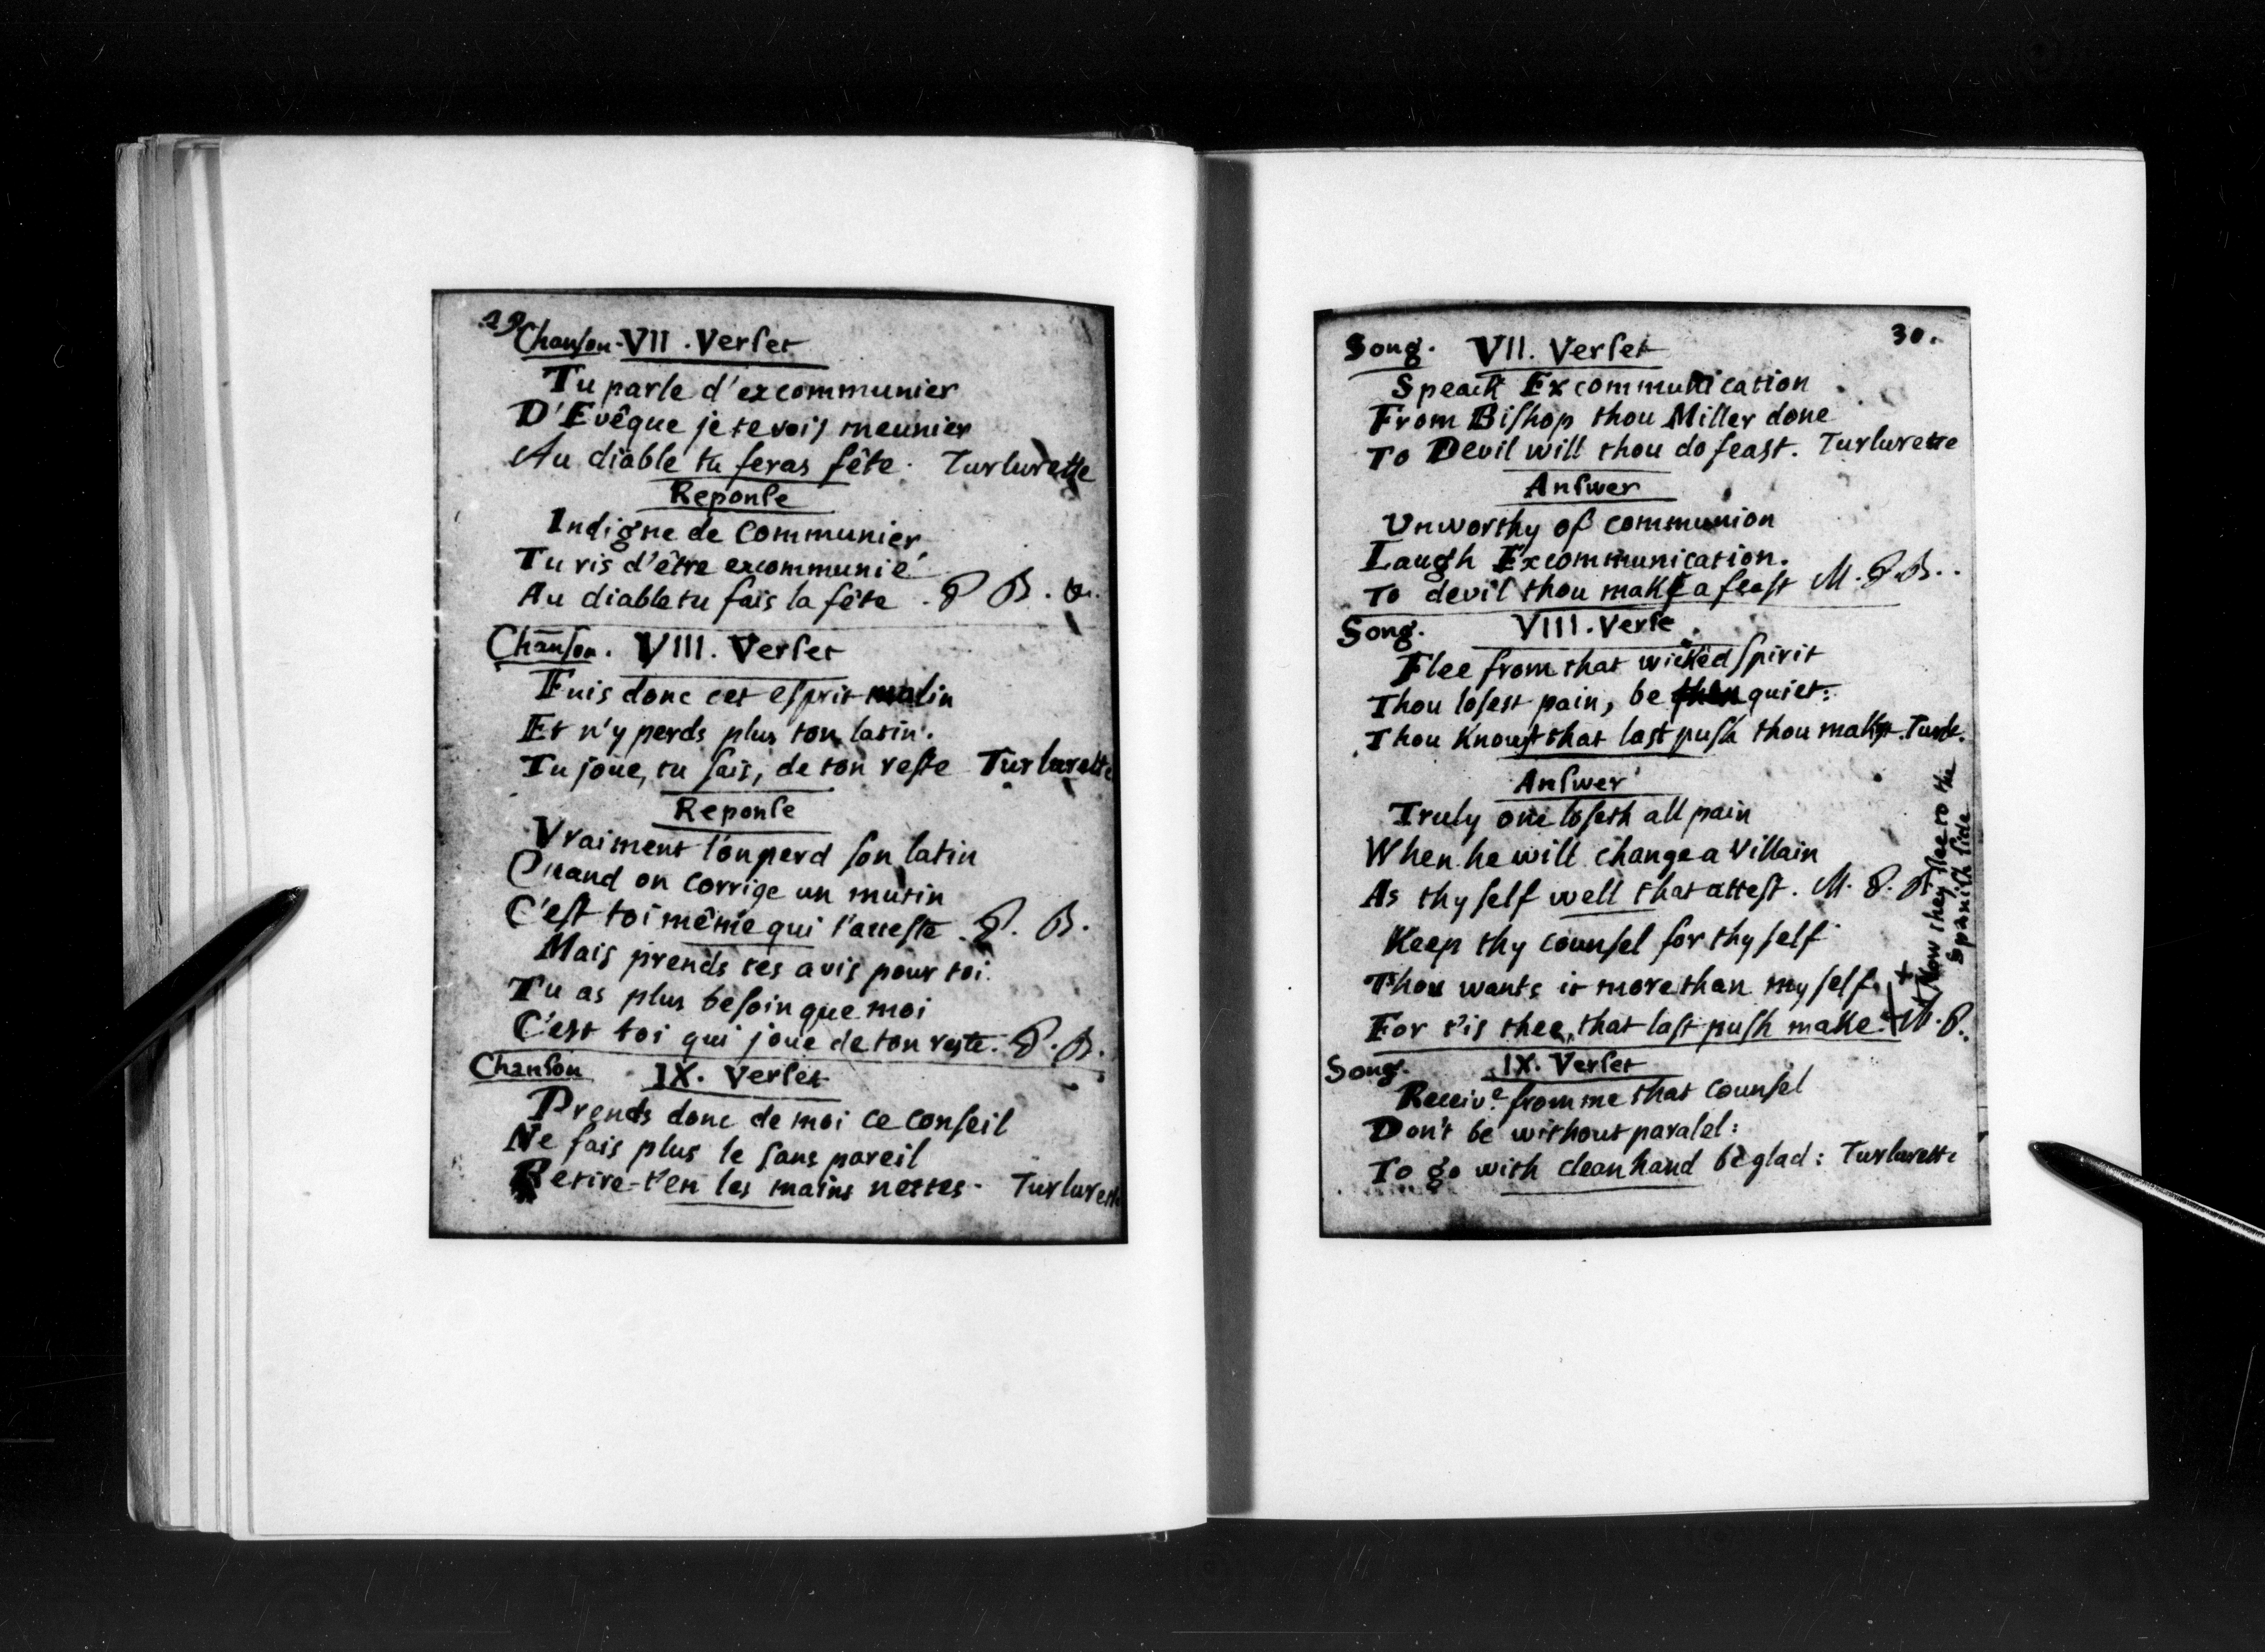 29
Chanson - VII. Verset
Tu parle d'excommunier
D'Evêque je te vois meunier
Au diable tu feras fête. Turlurette
Reponse
Indigne de communier
Tu ris d'être excommunié
Au diable tu fais la fête. P B.
Chanson. VIII. Verset
Fuis donc cet esprit malin
Et n'y perds plus ton latin.
Tu joue, tu sais, de ton reste Turlurette
Reponse
Vraiment l'on perd son latin
Quand on corrige un mutin
C'est toi même qui l'atteste. P. B.
Mais prends tes avis pour toi.
Tu as plus besoin que moi
C'est toi qui joue de ton reste. P. B.
Chanson IX. Verset
Prends donc de moi ce conseil
Ne fais plus le sans pareil
Retire-t'en les mains nettes. Turlurett
30.
Song. VII. Verset
Speack Excommunication
From Bishop thou Miller done
To Devil will thou do feast. Turlurette
Answer
Unworthy of communion
Laugh Excommunication.
To devil thou make a feast M. P. B.
Song. VIII. Verse
Flee from that wicked spirit
Thou losest pain, be quiet:
Thou knowst that last push thou makst. Turle.
Answer
Truly one loseth all pain
When he will change a Villain
As thy self well that attest. M. P. B
Keep thy counsel for thy self
Thou wants it more than my self. +
For t'is thee, that last push make. + M. P.
+ Now they flee to the
Spanish side
Song. IX. Verset
Receive from me that counsel
Don't be without paralel:
To go with clean hand be glad: Turlurette